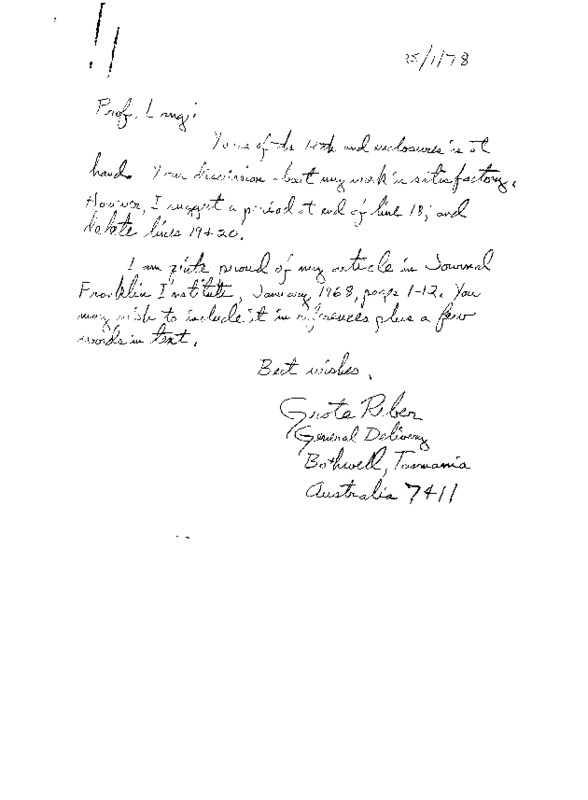 25/1/78
Prof. Lang:
Yours of the 12th and enclosures is at
hand. Your discussion about my work is satisfactory.
However, I suggest a period at end of line 18; and
delete lines 19+20.
I am quite proud of my article in Journal
Franklin Institute, January 1968, page 1-12. You
may wish to include it in references plus a few
words in text.
Best wishes,
Grote Reber
General Delivery
Bothwell, Tasmania
Australia 7411